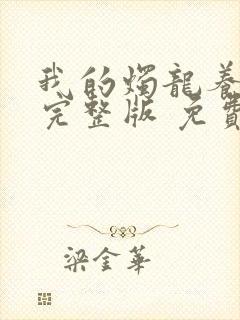 我的燭龍養
完整版 免費
梁金華